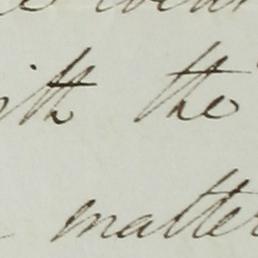 with the
matter